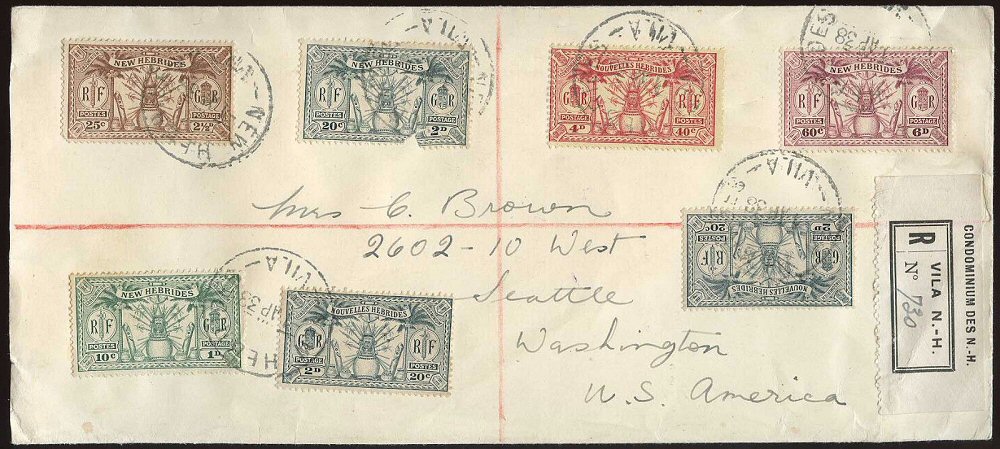 NEW HEBRIDES
RF GR
POSTES POSTAGE
25c 2½D
NEW HEBRIDES
RF GR
POSTES POSTAGE
20c 2D
NOUVELLES HEBRIDES
GR RF
POSTAGE POSTES
4D 40c
NEW HEBRIDES
RF GR
POSTES POSTAGE
60c 6D
VILA
NEW
VILA
VILA
AP 38
VILA
Mrs C. Brown
2602-10 West
Seattle
Washington
U.S. America
NEW HEBRIDES
RF GR
POSTES POSTAGE
10c 1D
VILA
HE
NOUVELLES HEBRIDES
GR RF
POSTAGE POSTES
2D 20c
NOUVELLES HEBRIDES
GR RF
POSTAGE POSTES
2D 20c
CONDOMINIUM DES N.-H.
R VILA N.-H.
No 730